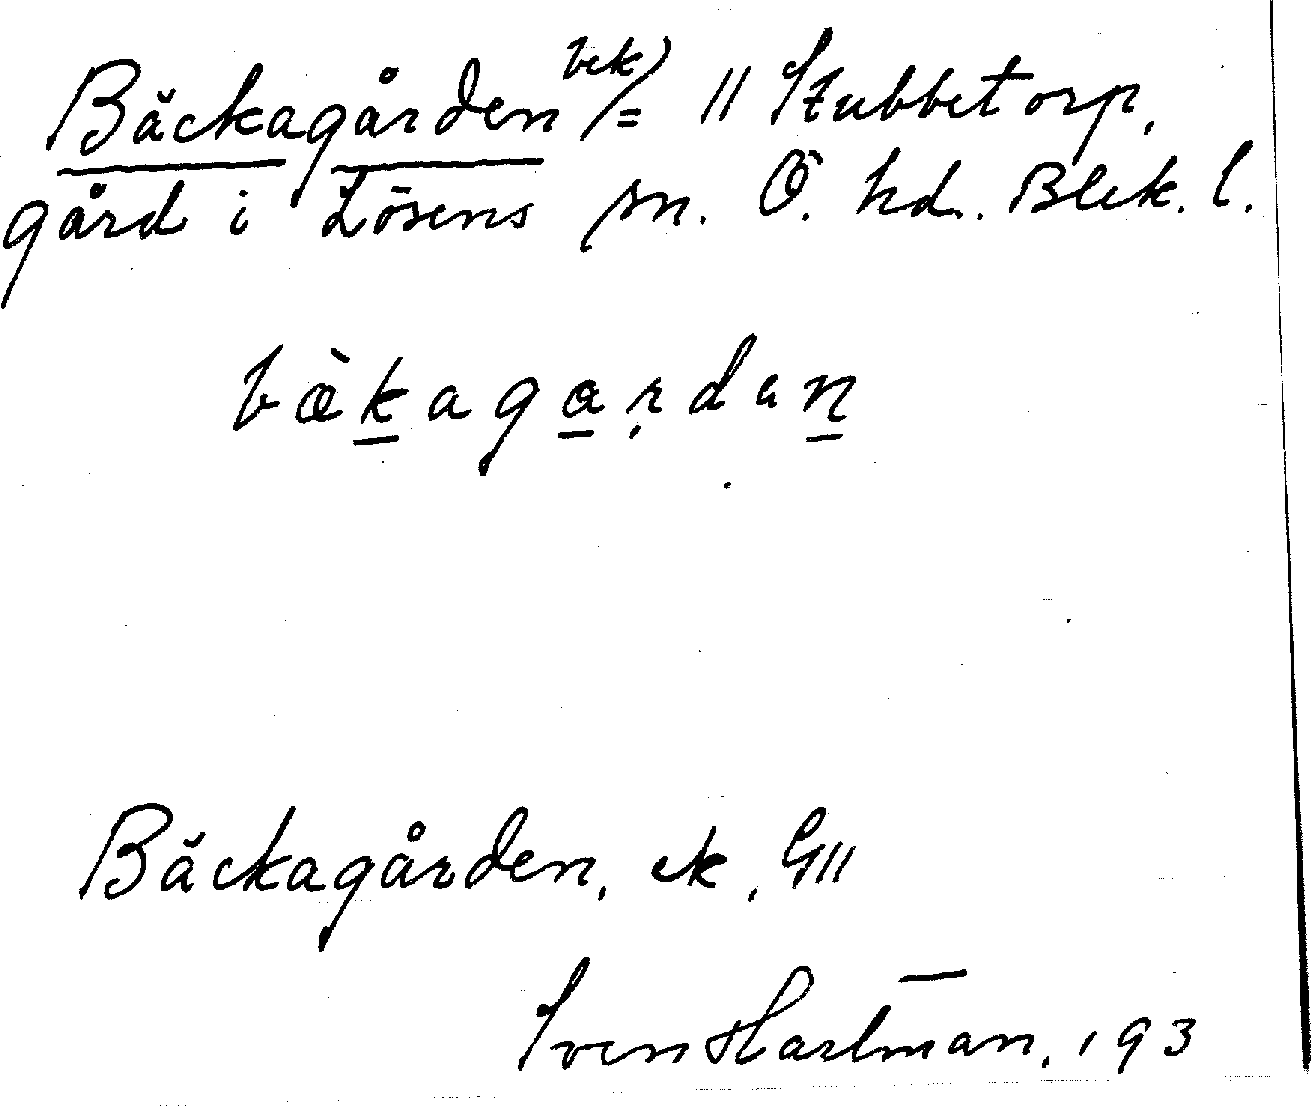 Bäckagården bek) /= // Stubbetorp,
gård i Lösens sn. Ö. hd. Blek. l.
bæ̀k̲aga̲ṛdən̲
Bäckagården, ek, G11
Sven Hartman, 193